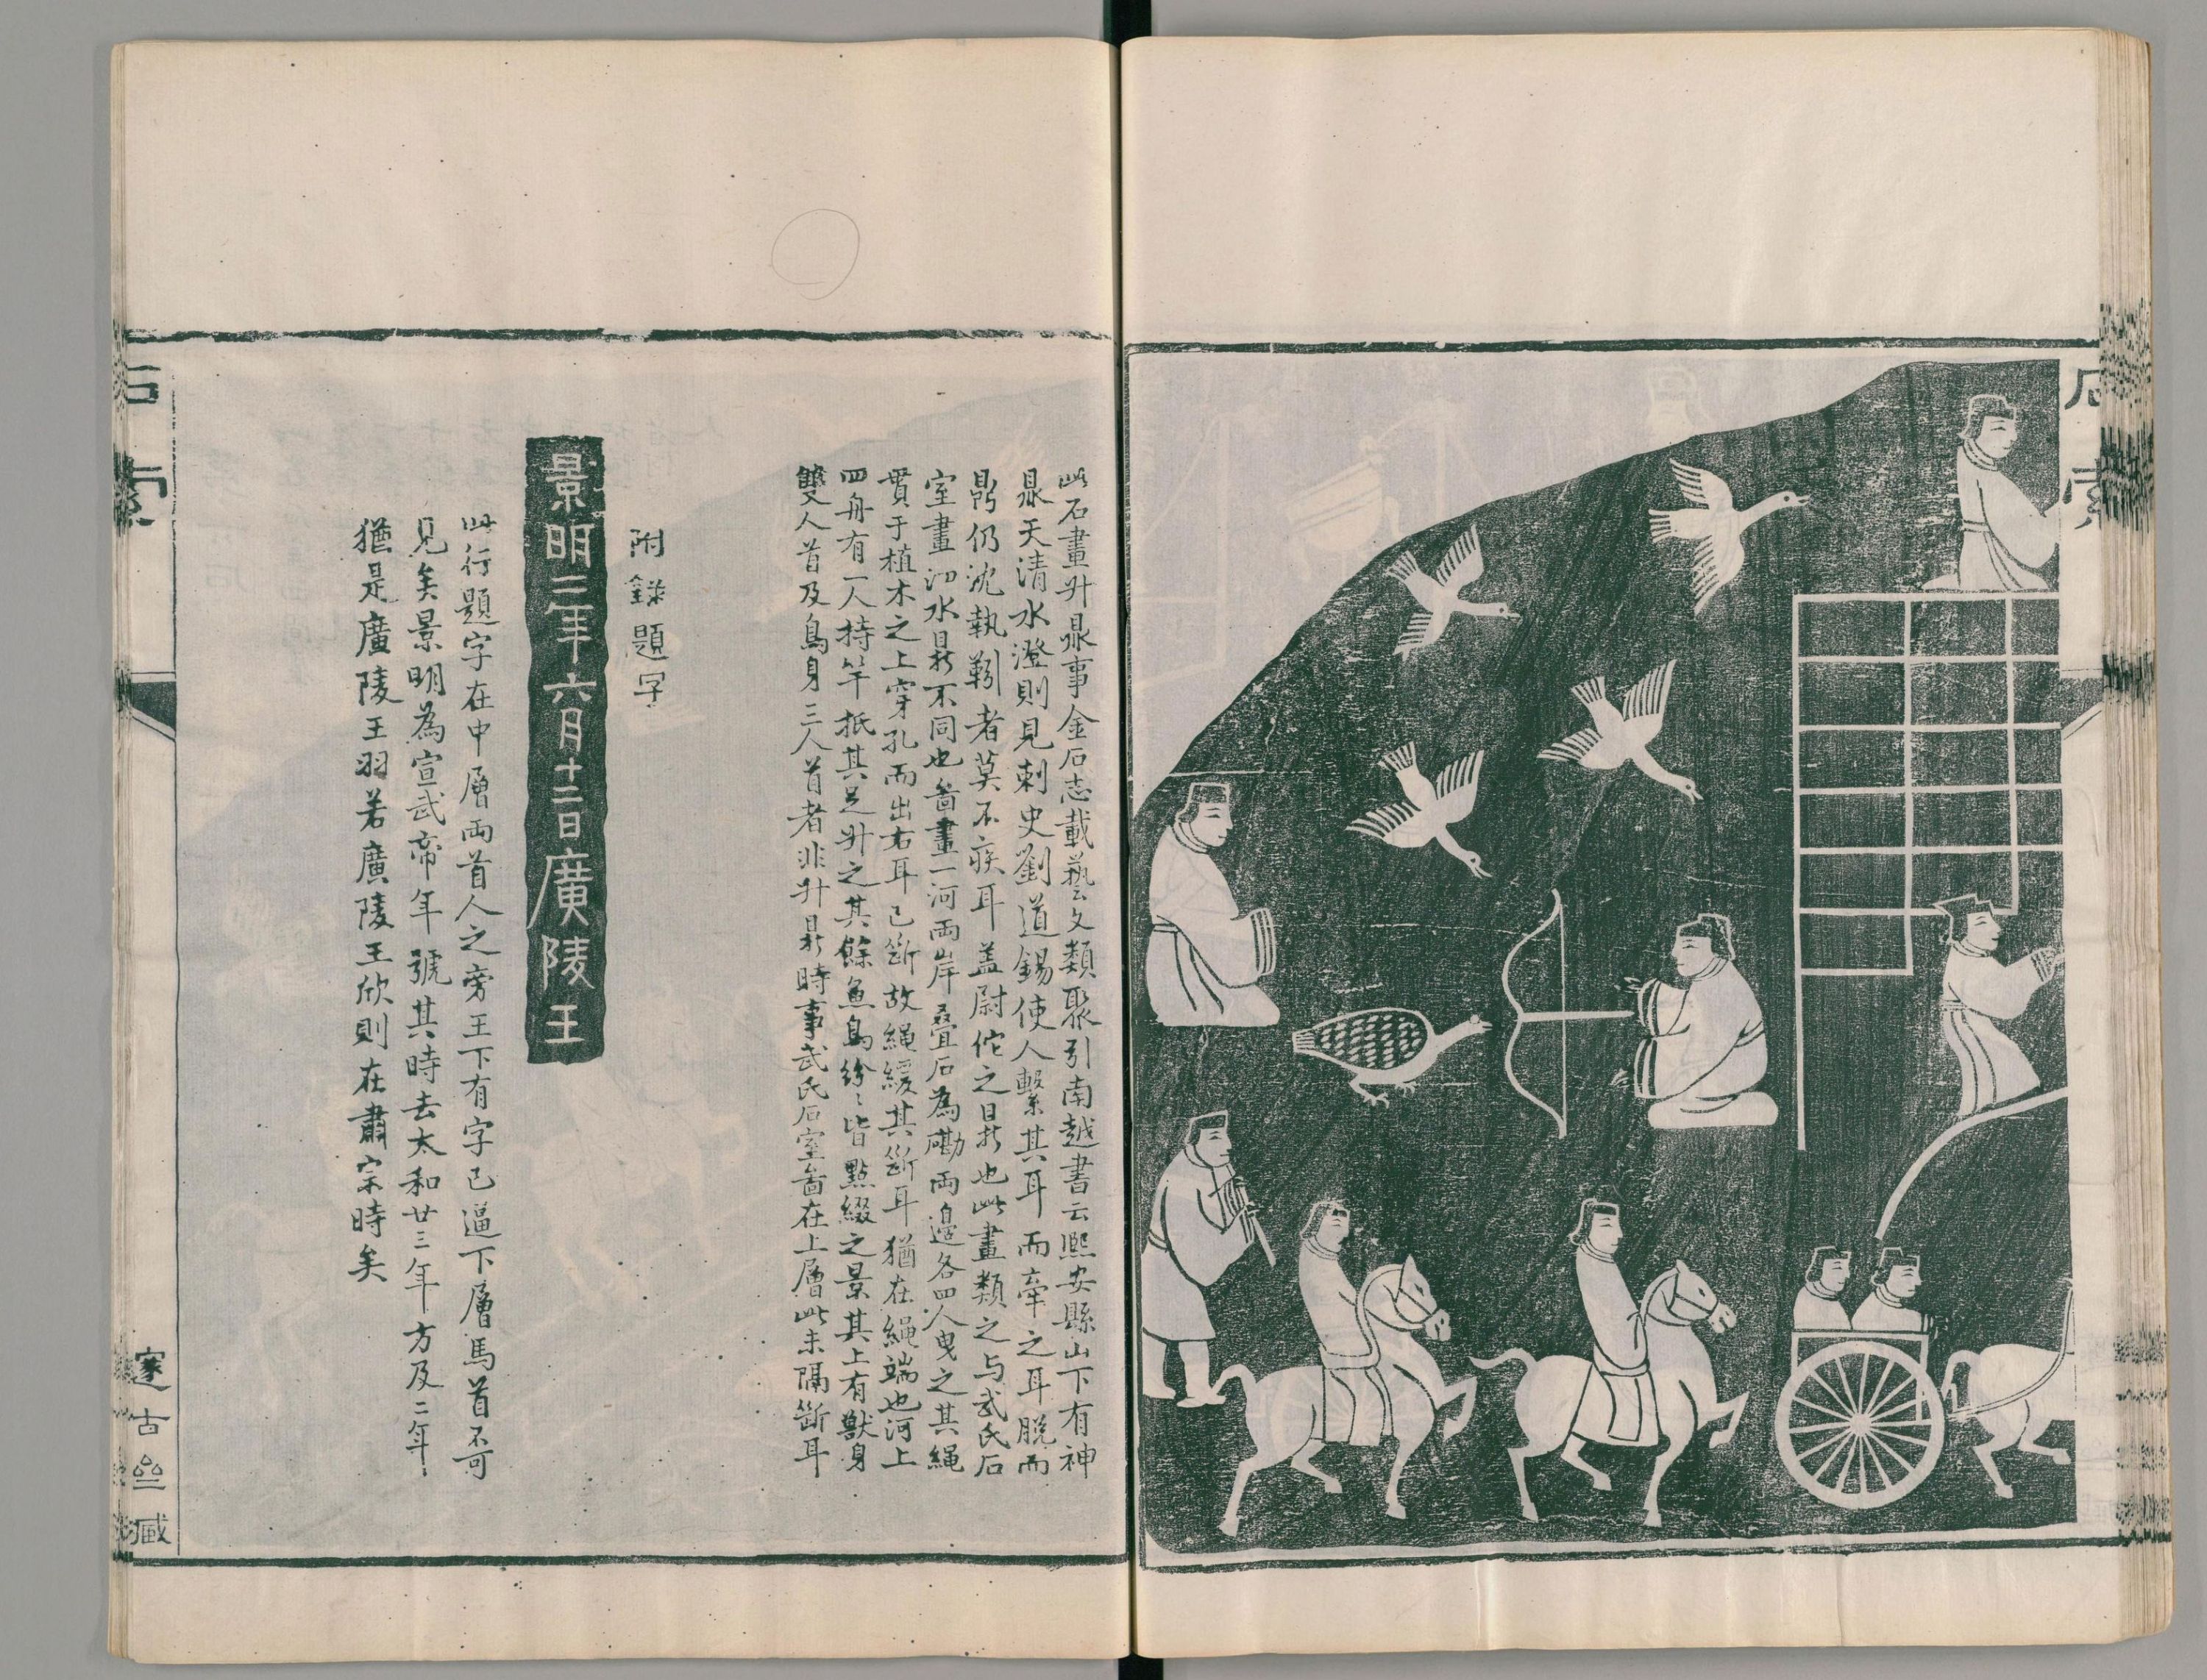 石索
此石畫升鼎事金石志載藝文類聚引南越書云熙安縣山下有神
鼎天清水澄則見刺史劉道錫使人繫其耳而牽之耳脫而
鼎仍沈執靷者莫不疾耳蓋尉佗之鼎也此畫類之与武氏石
室畫泗水鼎不同也啚畫一河兩岸疊石為磡兩邊各四人曳之其繩
貫于植木之上穿孔而出右耳已斷故繩緩其斷耳猶在繩端也河上
四舟有一人持竿抵其足升之其餘魚鳥紛〻皆點綴之景其上有獸身
雙人首及鳥身三人首者非升鼎時事武氏石室啚在上層此未隔斷耳
附錄題字
景明三年六月十二日廣陵王
此行題字在中層兩首人之旁王下有字已逼下層馬首不可
見矣景明為宣武帝年號其時去太和廿三年方及二年
猶是廣陵王羽若廣陵王欣則在肅宗時矣
石索
邃古𡔷臧